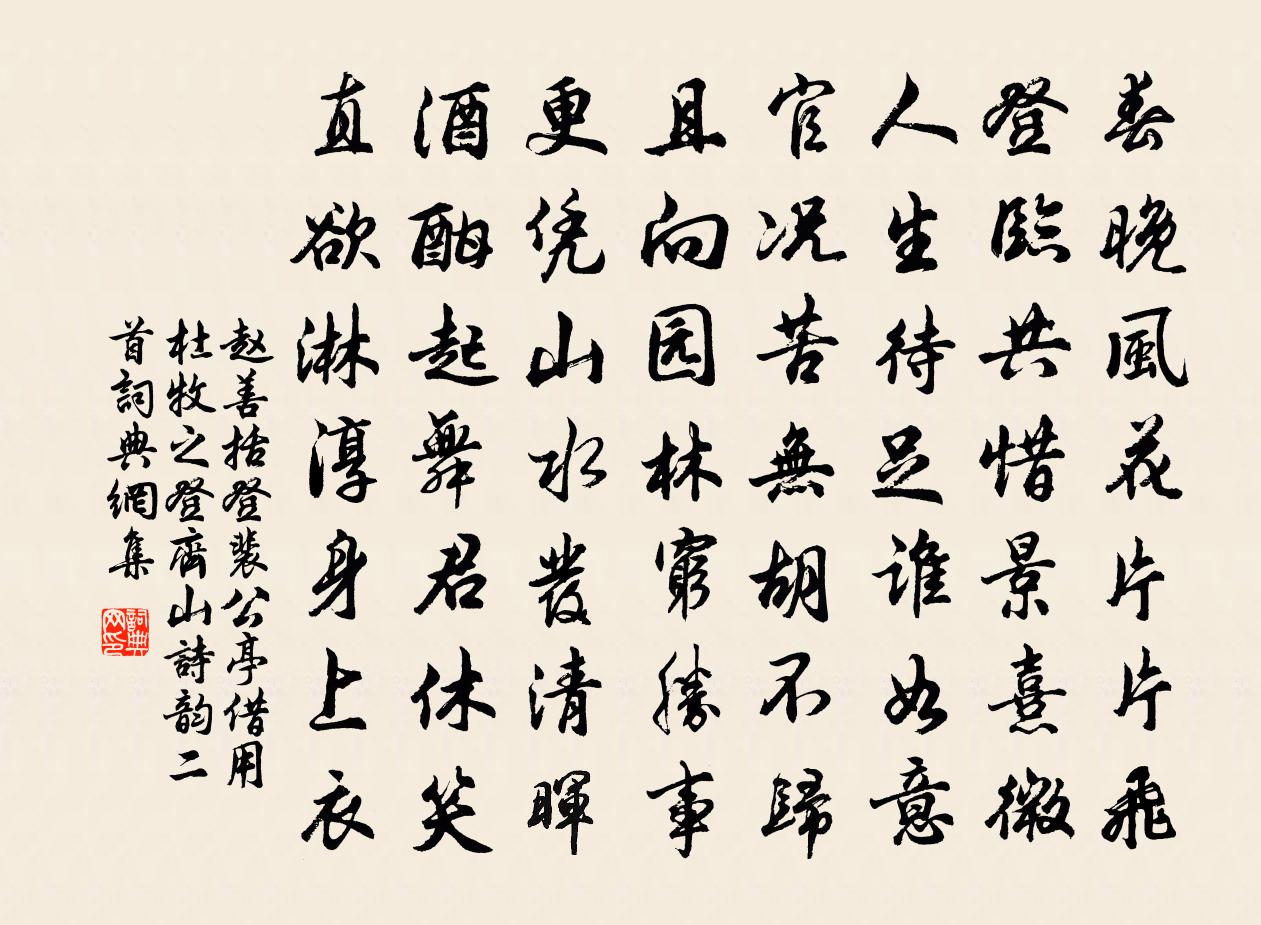 春晚風花片片飛
登臨共惜景熹微
人生待足誰如意
官况苦無胡不歸
且向园林窮勝事
更凭山水發清暉
酒酣起舞君休笑
直欲淋淳身上衣
赵善括登裴公亭借用
杜牧之登齊山詩韵二
首詞典網集
詞典
网印